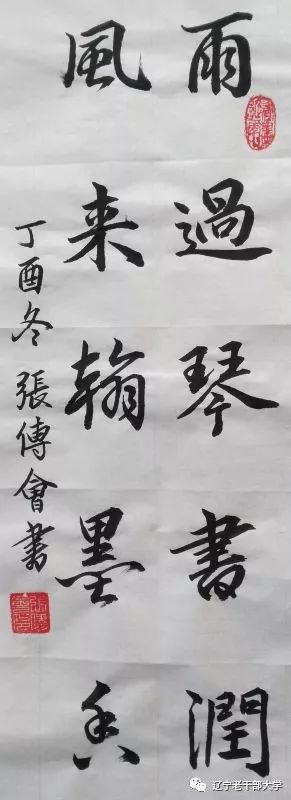 雨過琴書潤
風来翰墨香
丁酉冬張傳會書
辽宁老干部大学